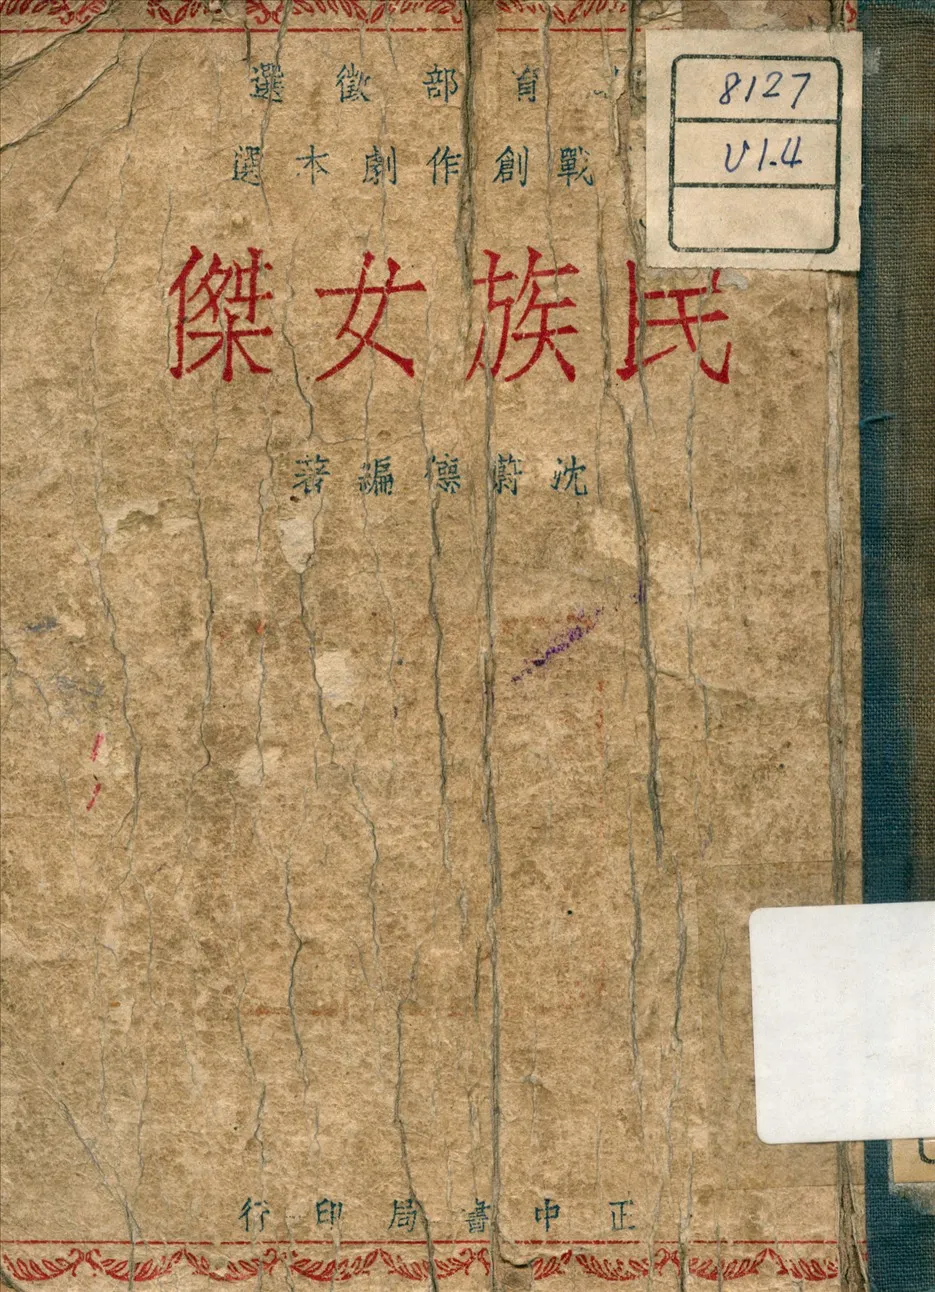 育部徵選
戰創作劇本選
民族女傑
沈蔚德編著
正中書局印行
8127
V1.4